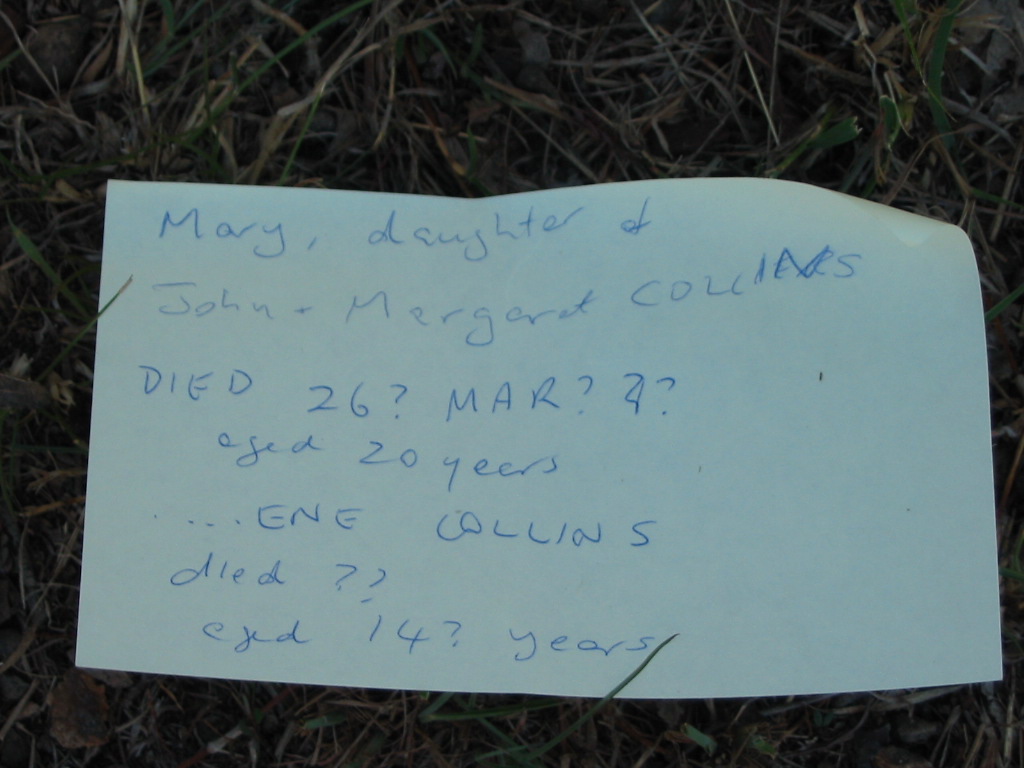 Mary, daughter of
John + Margaret COLLINS
DIED 26? MAR? ??
aged 20 years
.....ENE COLLINS
died ??
aged 14? years